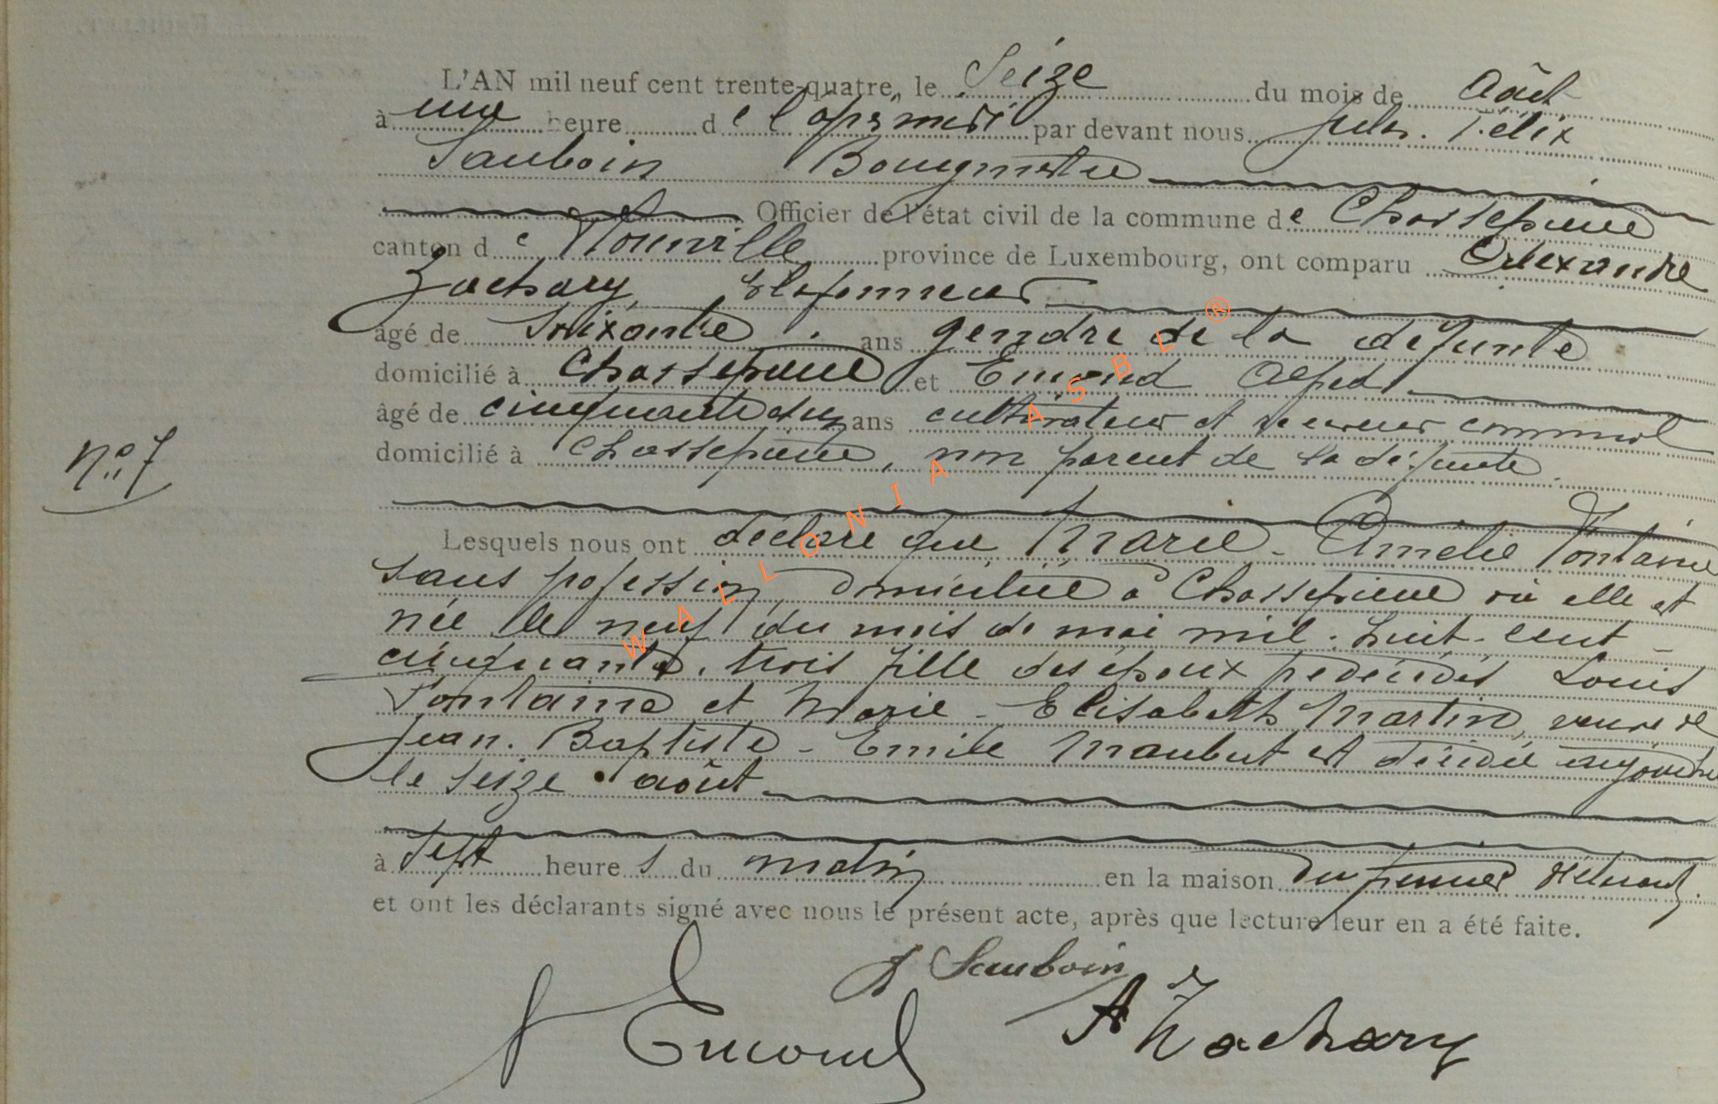 L'AN mil neuf cent trente-quatre, le Seize du mois de Août
à une heure de l'après midi par devant nous Jules. Félix
Sauboin Bourgmestre
Officier de l'état civil de la commune de Chassepierre
canton de Florenville province de Luxembourg, ont comparu Alexandre
Zachary, plafonneur
âgé de Soixante ans gendre de la défunte
domicilié à Chassepierre et Emond Alfred
âgé de cinquante deux ans cultivateur et receveur communal
domicilié à Chassepierre, non parent de la défunte.
n° 7
Lesquels nous ont déclaré que Marie-Amélie Fontaine
sans profession, domiciliée à Chassepierre où elle est
née le neuf du mois de mai mil-huit-cent-
cinquante-trois fille des époux prédécédés Louis
Fontaine et Marie-Elisabeth Martin, veuve de
Jean-Baptiste-Emile Maubert est décédée
le seize août
à Sept heures du matin en la maison du premier déclarant.
et ont les déclarants signé avec nous le présent acte, après que lecture leur en a été faite.
Sauboin
A Emond A Zachary
WALLONIA ASBL®